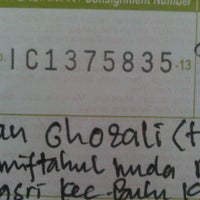 Consignment Number
IC1375835-13
an Ghozali (
miftahul huda
gsri kec.